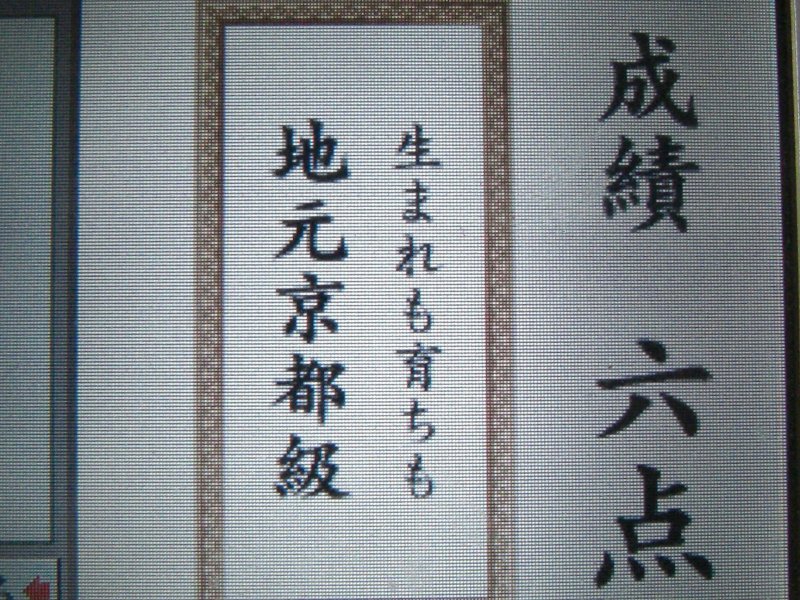 成績 六点
生まれも育ちも
地元京都級